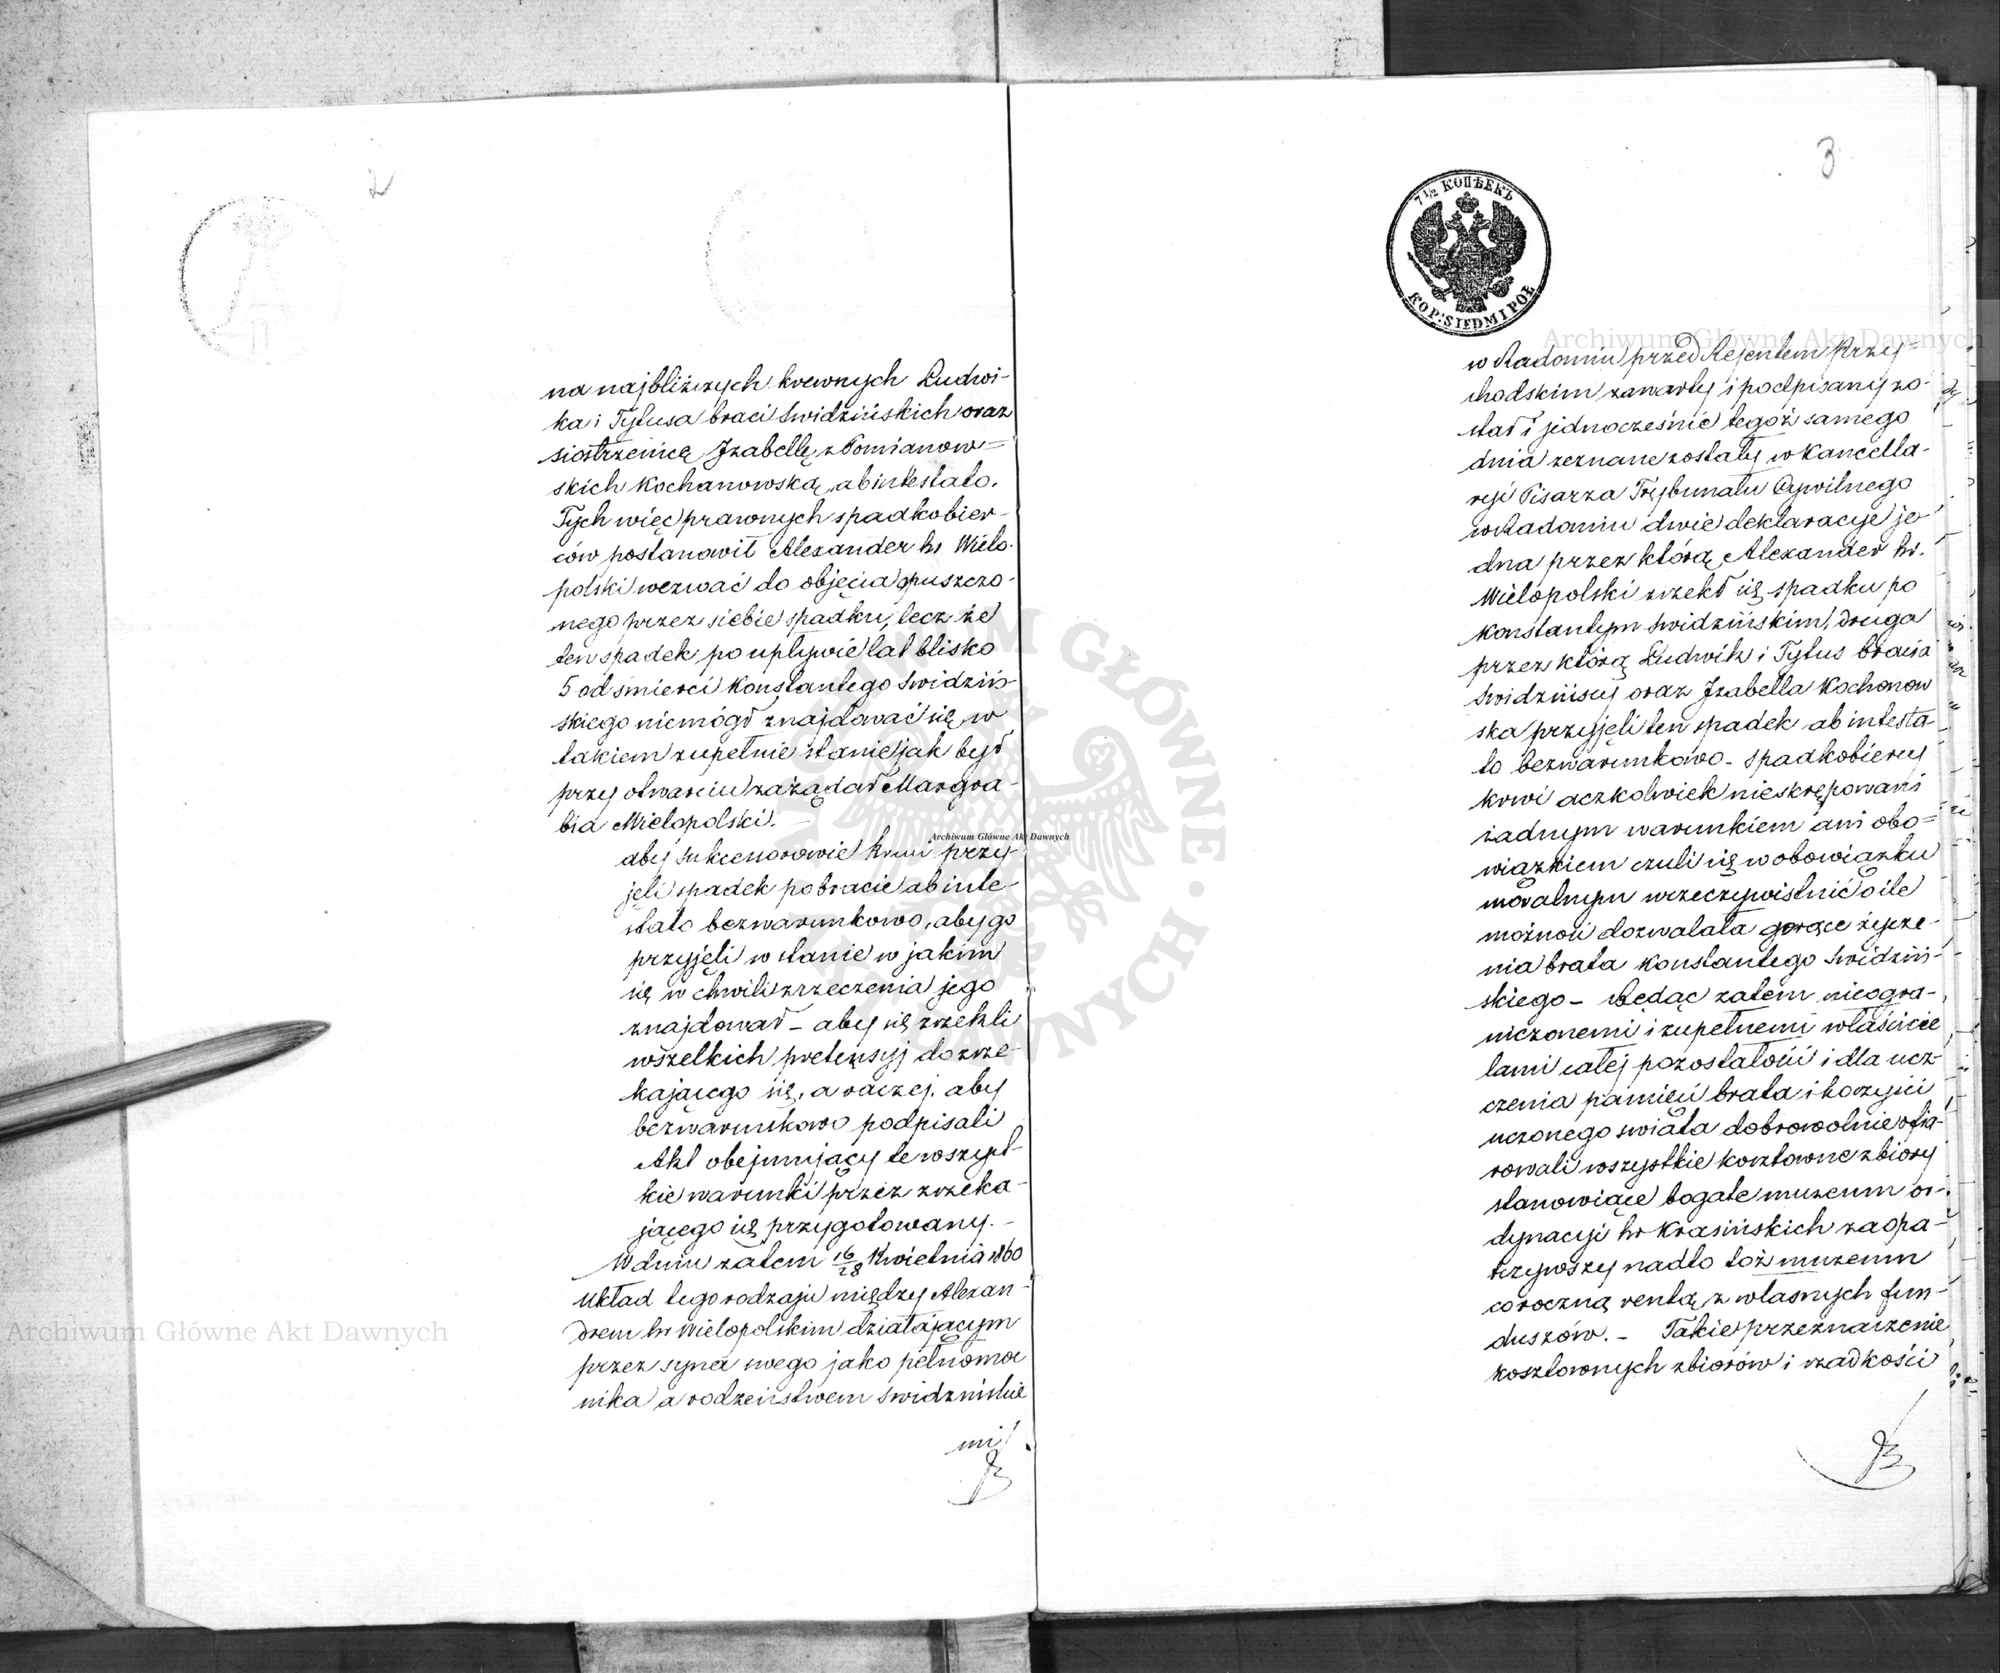 2
na najbliższych krewnych Ludwi-
ka i Tytusa braci Swidzińskich oraz
siostrzenicę Izabellę z Pomianow=
skich Kochanowską, ab intestato.
Tych więc prawnych spadkobier-
ców postanowił Alexander hr Wielo-
polski wezwać do objęcia opuszczo-
nego przez siebie spadku, lecz że
ten spadek po upływie lat blisko
5 od śmierci Konstantego Swidziń-
skiego niemógł znajdować się w
takiem zupełnie stanie jak był
przy otwarciu zażądał Margra-
bia Wielopolski.
aby sukcessorowie krwi przy-
jęli spadek po bracie ab inte-
stato bezwarunkowo, aby go
przyjęli w stanie w jakim
się w chwili zrzeczenia jego
znajdował – aby się zrzekli
wszelkich pretensyj do zrze-
kającego się, a raczej. aby
bezwarunkowo podpisali
Akt obejmujący te wszyst-
kie warunki przez zrzeka-
jącego się przygotowany. –
W dniu zatem 16/28 Kwietnia 1860
układ tego rodzaju między Alexan-
drem hr Wielopolskim działającym
przez syna swego jako pełnomoc
nika a rodzeństwem Swidzińskie
mi
3
7½ КОПѢЕКЪ
KOP: SIEDM I POŁ
w Radomiu przed Rejentem Przy=
chodskim zawarty i podpisany zo-
stał i jednocześnie tegoż samego
dnia zeznane zostały w Kancella-
ryi Pisarza Trybunału Cywilnego
w Radomiu dwie deklaracyje je
dna przez którą Alexander hr.
Wielopolski zrzekł się spadku po
Konstantym Swidzińskim, druga
przez którą Ludwik i Tytus bracia
Swidzińscy oraz Izabella Kochanow
ska przyjęli ten spadek ab intesta-
to bezwarunkowo – Spadkobiercy
krwi aczkolwiek nieskrępowani
żadnym warunkiem ani obo=
wiązkiem czuli się w obowiązku
moralnym urzeczywistnić o ile
możność dozwalała gorące życze-
nia brata Konstantego Swidziń-
skiego – Będąc zatem nieogra-
niczonemi i zupełnemi właścicie
lami całej pozostałości i dla ucz-
czenia pamięci brata i korzyści
uczonego swiata dobrowolnie ofia-
rowali wszystkie kosztowne zbiory
stanowiące bogate muzeum or-
dynacyi hr Krasińskich zaopa-
trzywszy nadto toż muzeum
coroczną rentą z własnych fun-
duszów. – Takie przeznaczenie
kosztownych zbiorów i rzadkości
Archiwum Główne Akt Dawnych
Archiwum Główne Akt Dawnych
Archiwum Główne Akt Dawnych